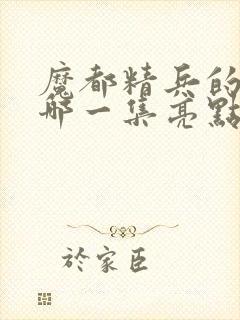 魔都精兵的
哪一集亮點
於家臣